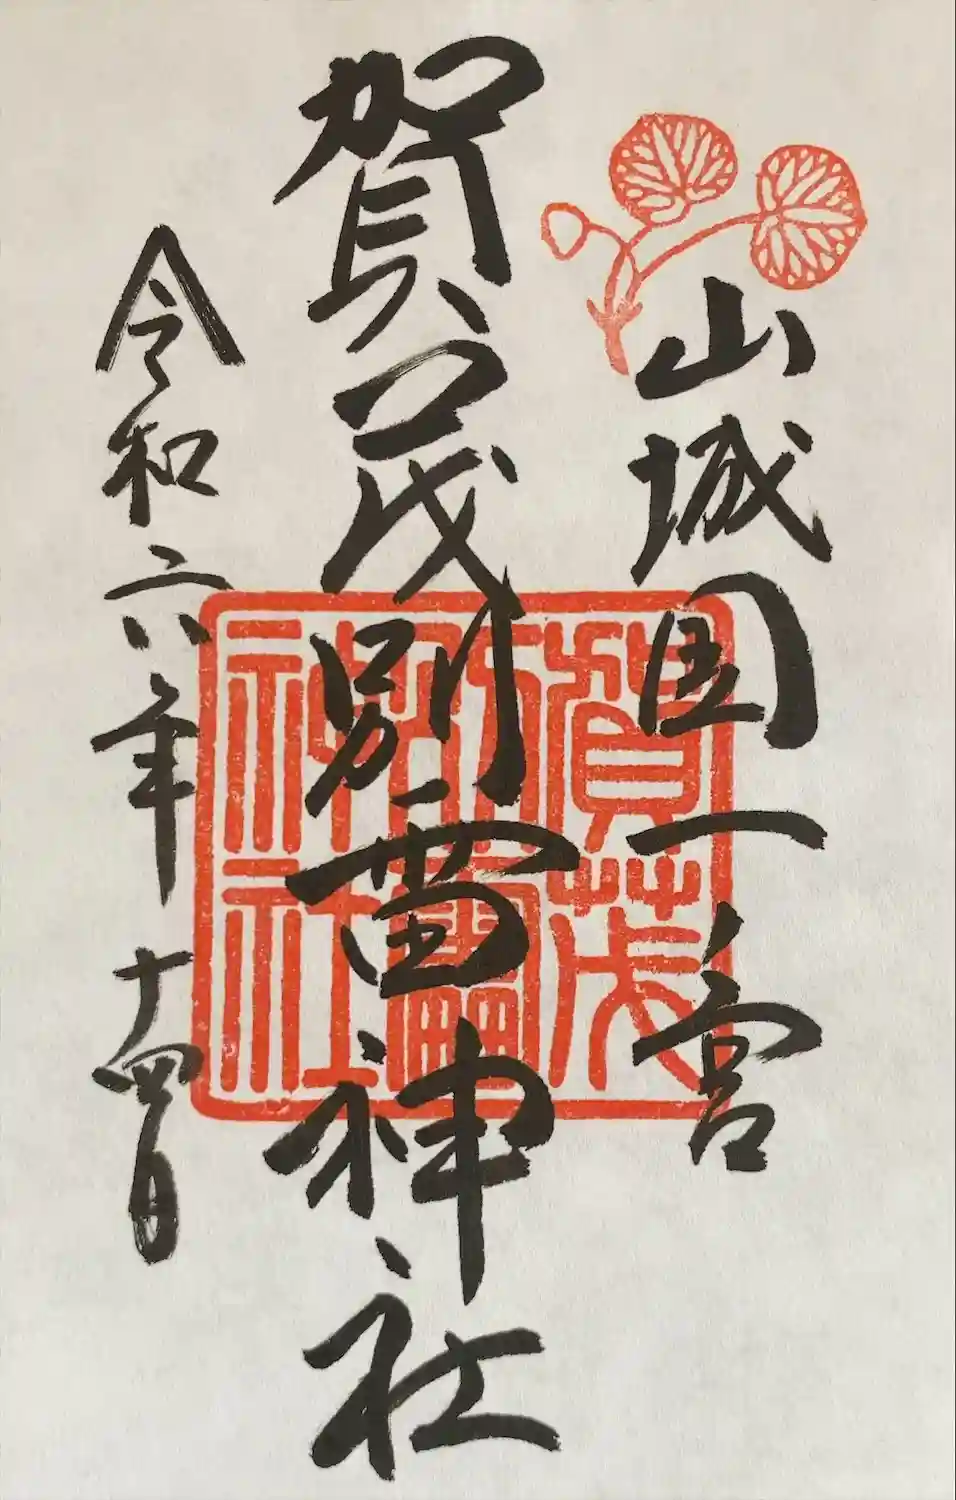 山城国一宮
賀茂別雷神社
令和六年
賀茂
別雷
神社